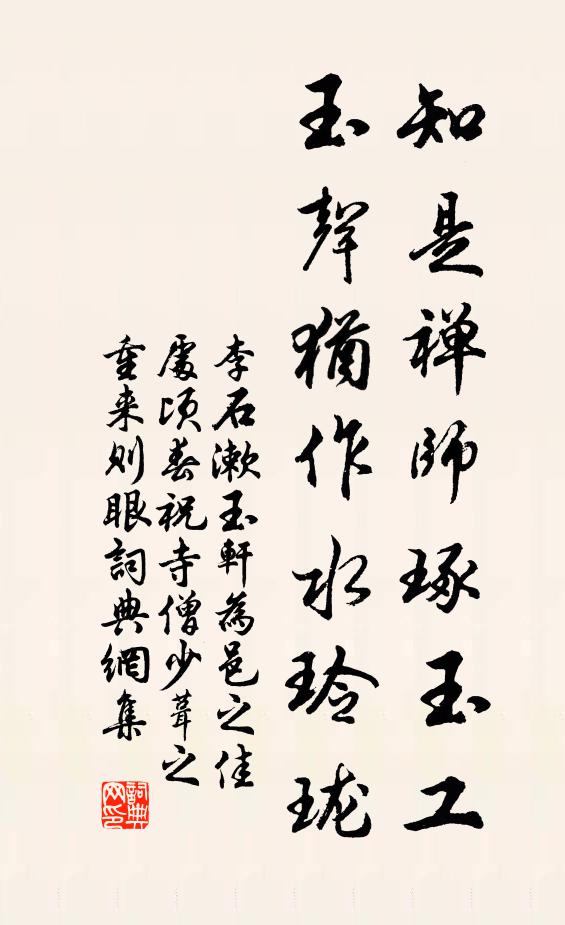 知是禅師琢玉工
玉聲猶作水玲瓏
李石漱玉軒為邑之佳
處頃春祝寺僧少葺之
重来則眼詞典網集
詞典网印